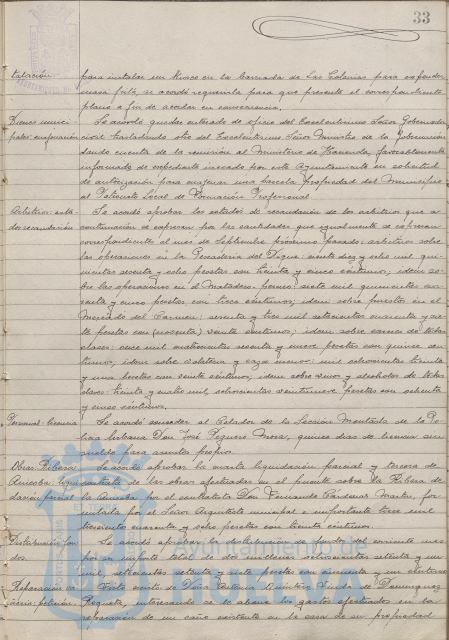 33
talación para instalar un Kiosco en la Barriada de Las Colonias para expender
masa frita, se acordó requerirla para que presente el correspondiente
plano a fin de acordar en consecuencia.
Bienes munici- Se acordó quedar enterado de oficio del Excelentísimo Señor Gobernador
pales: enajenación civil trasladando otro del Excelentísimo Señor Ministro de la Gobernación
dando cuenta de la remisión al Ministerio de Hacienda, favorablemente
informado, de expediente incoado por este Ayuntamiento en solicitud
de autorización para enajenar una parcela propiedad del Municipio
al Patronato Local de Formación Profesional.
Arbitrios: esta- Se acordó aprobar los estados de recaudación de los arbitrios que a
dos recaudación continuación se expresan por las cantidades que igualmente se expresan
correspondientes al mes de Septiembre próximo pasado: arbitrios sobre
las operaciones en la Pescadería del Dique: veinte diez y ocho mil qui-
nientas setenta y ocho pesetas con treinta y cinco céntimos; idem so-
bre las operaciones en el Matadero: pesetas siete mil quinientas cin-
cuenta y cinco pesetas con trece céntimos; idem sobre puestos en el
Mercado del Carmen: setenta y tres mil setecientas cuarenta y sie-
te pesetas con (noventa) veinte céntimos; idem sobre carnes de todas
clases: once mil cuatrocientas sesenta y nueve pesetas con quince cén-
timos; idem sobre volatería y caza menor: mil ochocientas treinta
y una pesetas con veinte céntimos; idem sobre vinos y alcoholes de todas
clases: treinta y cuatro mil, ochocientas veintinueve pesetas con ochenta
y cinco céntimos.
Personal: licencia Se acordó conceder al Celador de la Sección Montada de la Po-
licía Urbana Don José Peguero Mora, quince días de licencia sin
sueldo para asuntos propios.
Obras Ribera Se acordó aprobar la cuarta liquidación parcial y tercera de
Anicoba: liqui- contrata de las obras efectuadas en el puente sobre la Ribera de
dación parcial la Anicoba por el contratista Don Fernando Cárdenas Martín, for-
mulada por el Señor Arquitecto municipal e importante trece mil
trescientas cuarenta y ocho pesetas con treinta céntimos.
Distribución fon- Se acordó aprobar la distribución de fondos del corriente mes
dos por un importe total de dos millones ochocientas setenta y un
mil setecientas setenta y siete pesetas con cincuenta y un céntimos.
Reparación ca- Visto escrito de Doña Antonia Quintero Viuda de Domínguez
ñería: petición Roqueta, interesando se le abone los gastos efectuados en la
reparación de un caño existente en la casa de su propiedad
Ayuntamiento
HUELVA